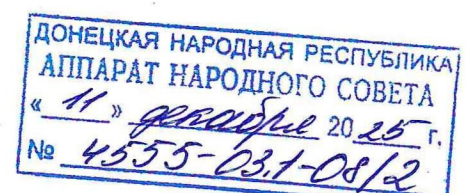 ДОНЕЦКАЯ НАРОДНАЯ РЕСПУБЛИКА
АППАРАТ НАРОДНОГО СОВЕТА
« 11 » декабря 20 25 г.
№ 4555-03.1-08/2